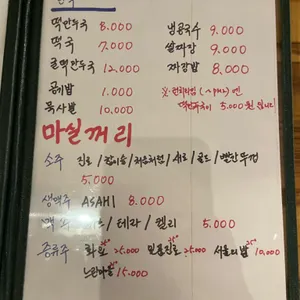 떡만두국 8.000
떡국 7.000
굴떡만두국 12,000
공기밥 1.000
목사발 10,000
냉콩국수 9.000
쌀떡강 9,000
8,000
※런치타임 (~PM2)엔
떡만두국이 5.000원 입니다
마실꺼리
소주 진로/참이슬/처음처럼/새로/골드/빨간뚜껑
5.000
생맥주 ASAHI 8.000
맥주 /테라/켈리 5.000
증류주 화요 25° 25.000 일품진로 25° 25.000 서울의밤 25° 10,000
느린마을 15.000